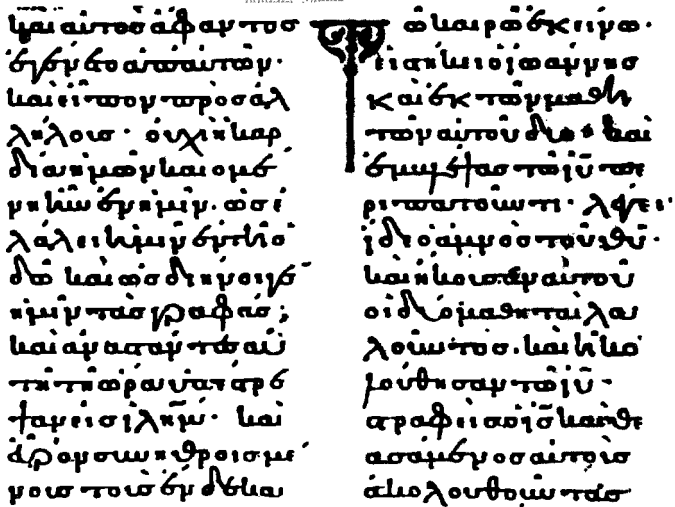 καὶ αὐτὸς ἄφαντος
ἐγένετο ἀπ' αὐτῶν·
καὶ εἶπον πρὸς ἀλ
λήλους· οὐχὶ ἡ καρ
δία ἡμῶν καιομέ
νη ἦν ἐν ἡμῖν· ὡς ἐ
λάλει ἡμῖν ἐν τῇ ὁ
δῶ καὶ ὡς διήνοιγε
ἡμῖν τὰς γραφάς;
καὶ ἀναστάντες αὐ
τῆ τῆ ὥρα ὑπέστρε
ψαν εἰς ἱλημ· καὶ
εὗρον συνηθροισμέ
νους τοὺς ἕνδεκα
Τῶ καιρῶ ἐκείνω·
εἱστήκει ὁ ἰωάννης
καὶ ἐκ τῶν μαθη
τῶν αὐτοῦ δύο· καὶ
ἐμβλέψας τῶ ι̅υ̅ πε
ριπατοῦντι· λέγει·
ἴδε ὁ ἀμνὸς τοῦ θ̅υ̅·
καὶ ἤκουσαν αὐτοῦ
οἱ δύο μαθηταὶ λα
λοῦντος· καὶ ἠκο
λούθησαν τῶ ι̅υ̅·
στραφεὶς ὁ ι̅ς̅ καὶ θε
ασάμενος αὐτοὺς
ἀκολουθοῦντας